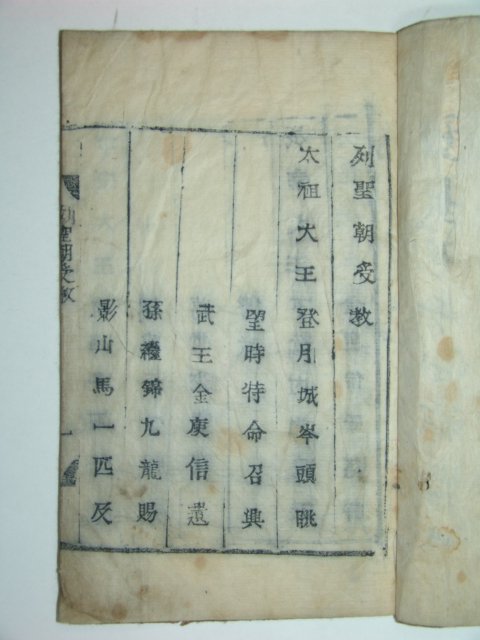 列聖朝受教
太祖大王登月城岑頭眺
望時特命召興
武王金庾信遺
孫纘錦九龍賜
影山馬一匹及
列聖朝受教
一